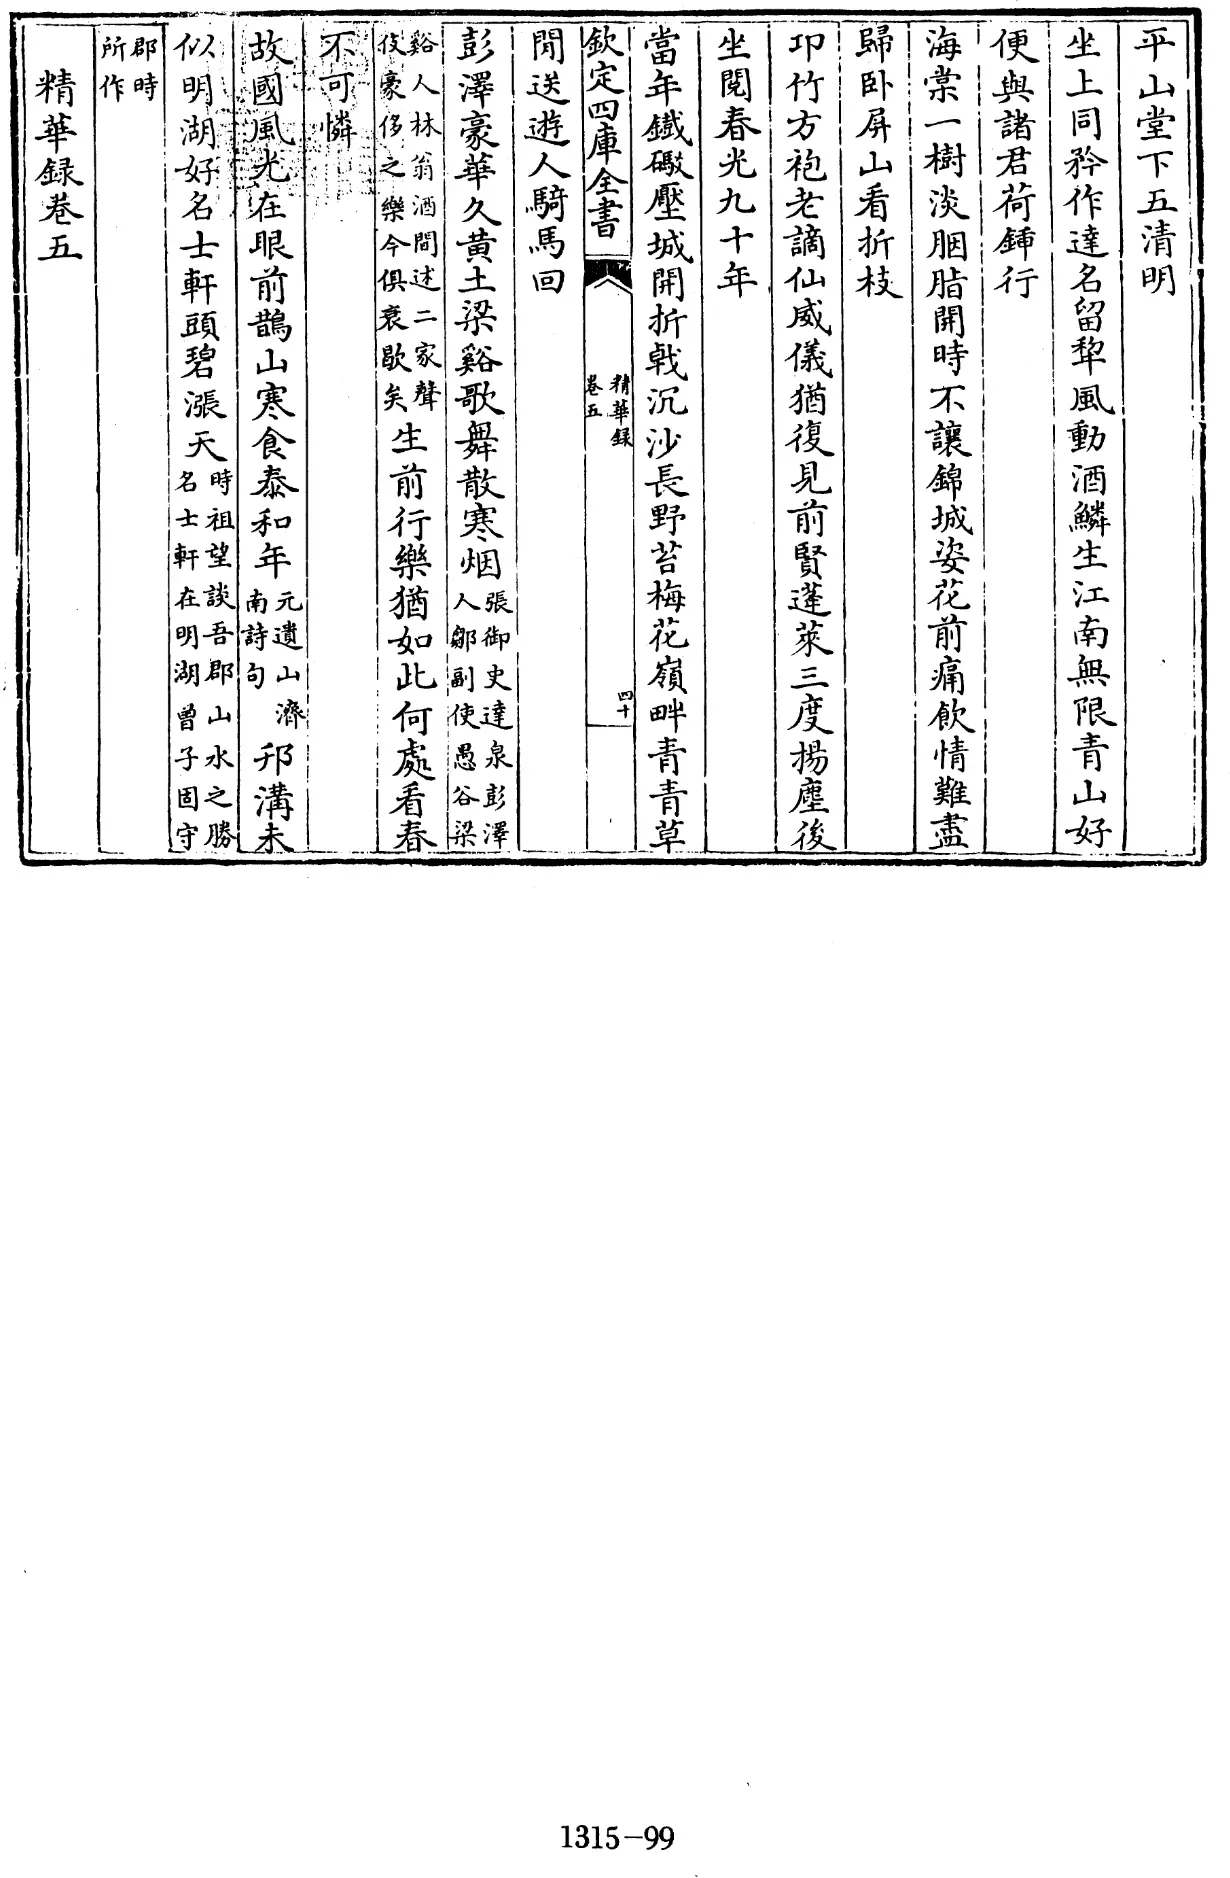 平山堂下五清明
坐上同矜作達名留犂風動酒鱗生江南無限青山好
便與諸君荷鍤行
海棠一樹淡胭脂開時不讓錦城姿花前痛飲情難盡
歸卧屏山看折枝
卭竹方袍老謫仙威儀猶復見前賢蓬萊三度揚塵後
坐閱春光九十年
當年鐵礟壓城開折戟沉沙長野苔梅花嶺畔青青草
欽定四庫全書
精華録
卷五
四十
閒送遊人騎馬回
彭澤豪華久黄土梁谿歌舞散寒烟張御史達泉彭澤
人鄒副使愚谷梁
谿人林翁酒間述二家聲
伎豪侈之樂今俱衰歇矣生前行樂猶如此何處看春
不可憐
故國風光在眼前鵲山寒食泰和年元遺山濟
南詩句邗溝未
似明湖好名士軒頭碧漲天時祖望談吾郡山水之勝
名士軒在明湖曾子固守
郡時
所作
精華録卷五
1315-99